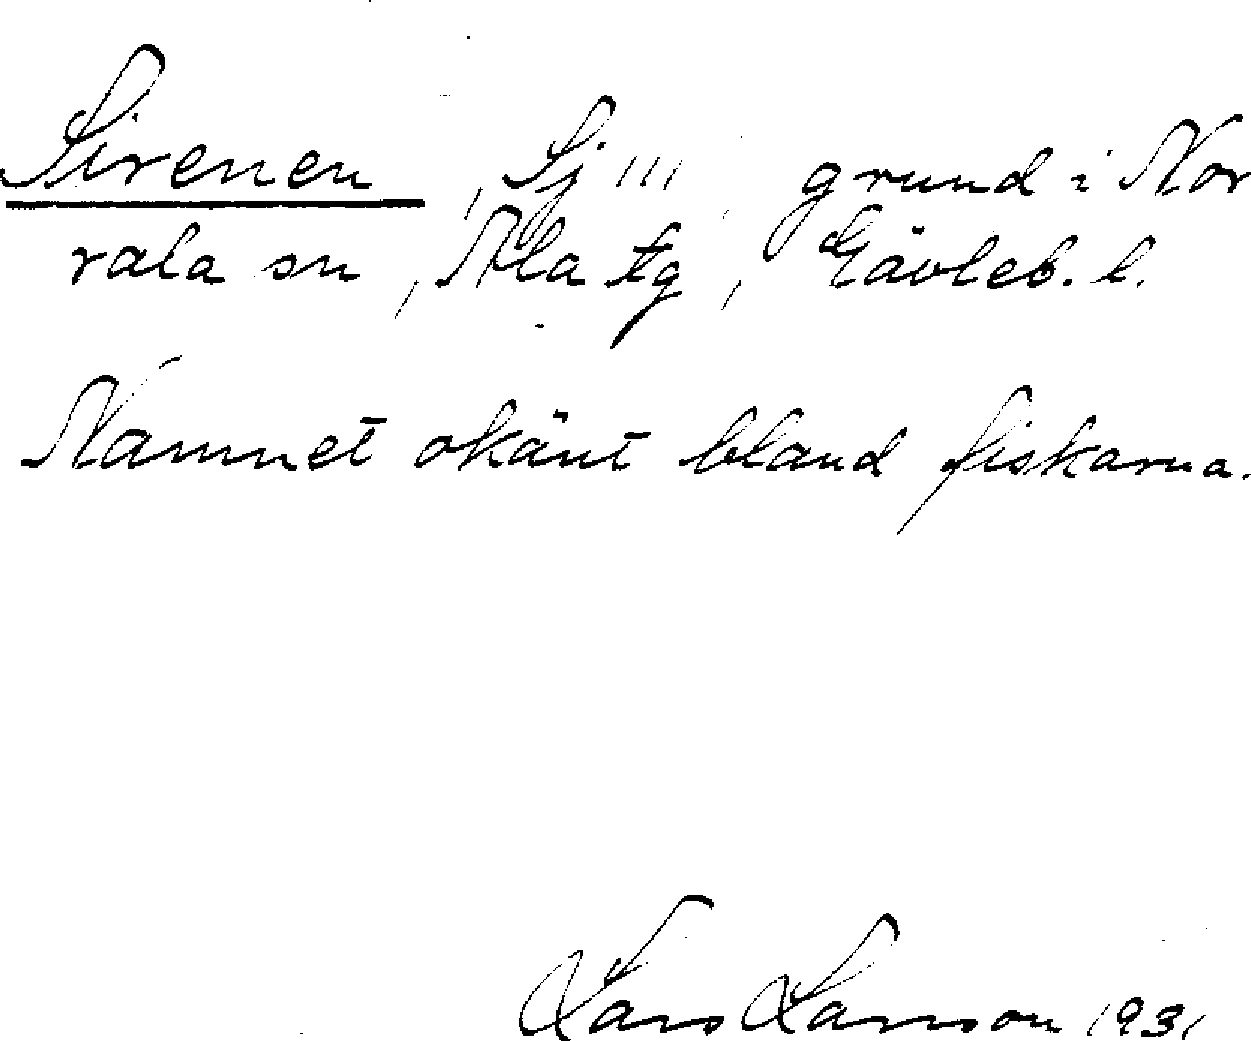 Sirenen, Sj 111, grund i Nor
rala sn, Ala tg, Gävleb. l.
Namnet okänt bland fiskarna.
Lars Larsson 1931